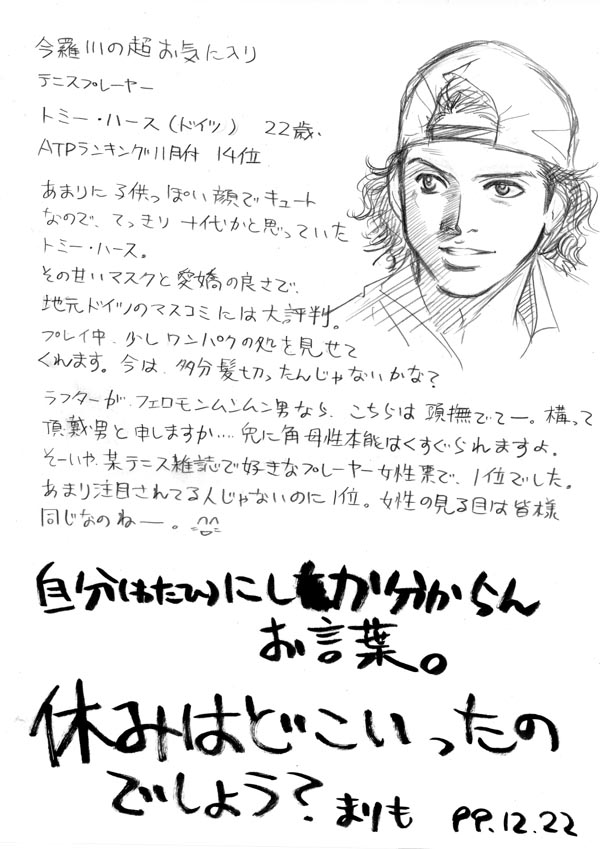 今羅川の超お気に入り
テニスプレーヤー
トミー・ハース(ドイツ) 22歳.
ATPランキング11月付 14位
あまりに子供っぽい顔でキュート
なので、てっきり十代かと思っていた
トミー・ハース。
そのせいマスクと愛嬌の良さで、
地元ドイツのマスコミには大評判。
プレイ中、少しワンパクの処を見せて
くれます。今は、多分髪切ったんじゃないかな?
ラフターが、フェロモンムンムン男なら、こちらは頭撫でてー。構って
頂戴男と申しますか‥‥兎に角母性本能はくすぐられますよ。
そーいや、某テニス雑誌で好きなプレーヤー女性票で、1位でした。
あまり注目されてる人じゃないのに1位。女性の見る目は皆様
同じなのねー。^^
自分(わたひ)にしか分からん
お言葉。
休みはどこいったの
でしょう? まりも 99.12.22